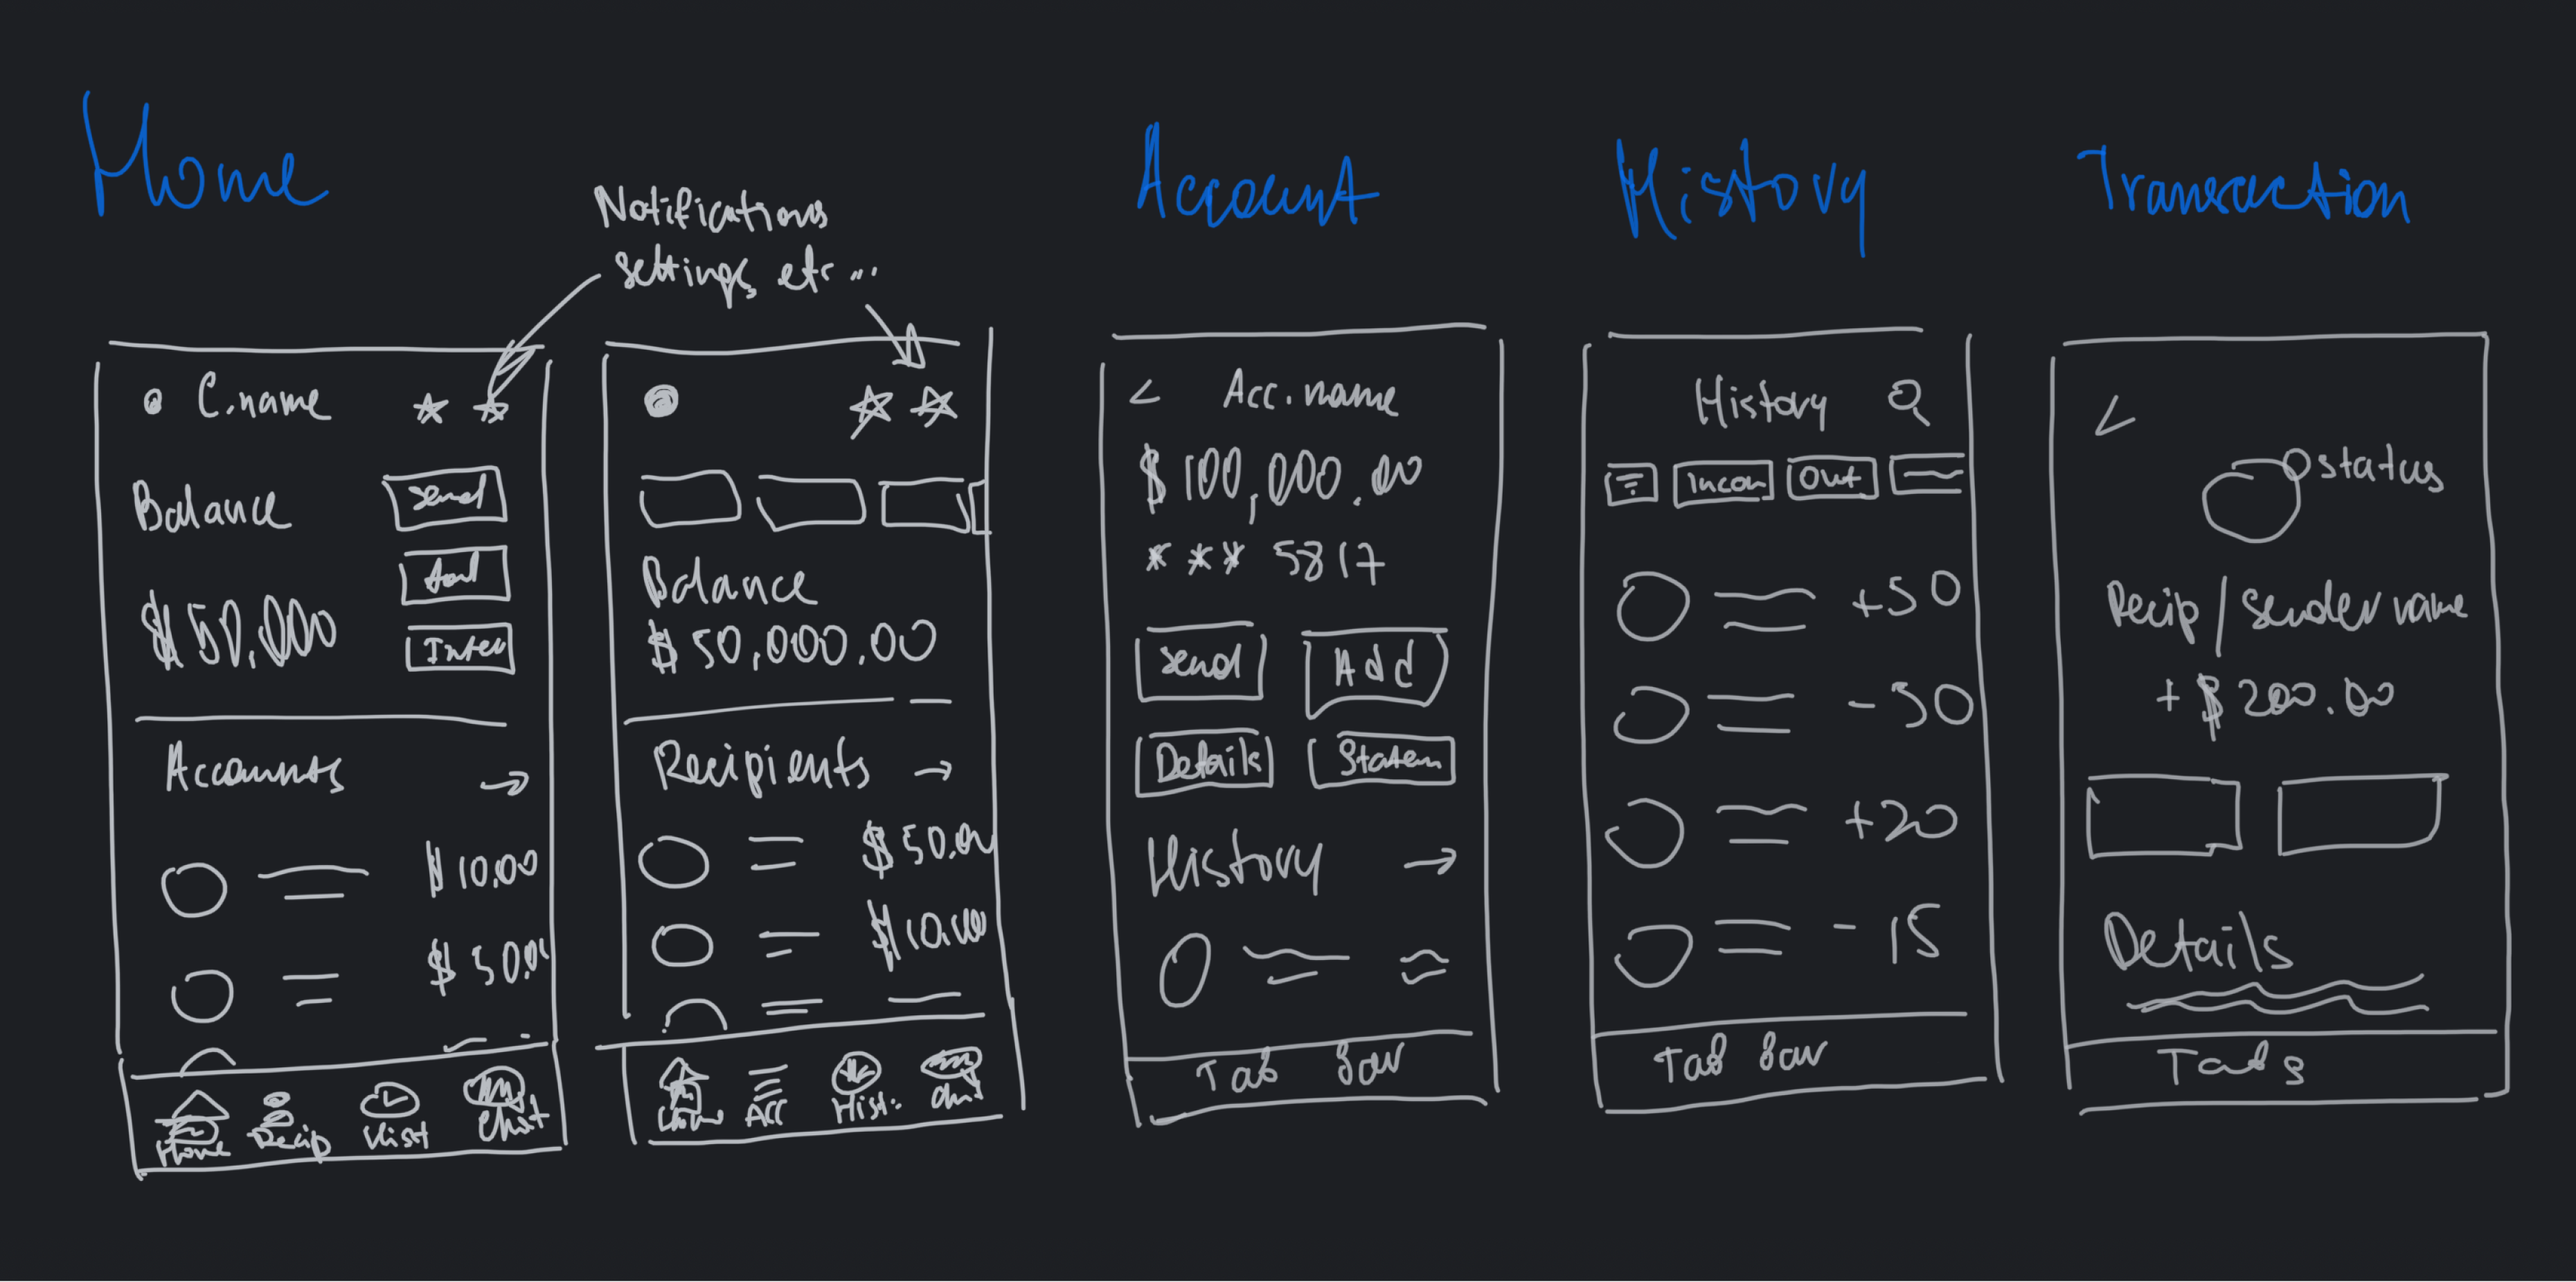 Home
Notifications
settings, etc...
C.name
Balance
Send
Add
$50,000
Accounts
$10.00
$50.0
Home
Recip
Hist
Chat
Balance
$50,000.00
Recipients
$50.00
$10.00
Home
Acc
Hist.
Account
< Acc. name
$100,000.00
*** 5817
Send
Add
Details
Statem
History
Tab Bar
History
History
Incom
Out
+50
-50
+20
-15
Tab Bar
Transaction
<
status
Recip/sender name
+ $200.00
Details
Tabs